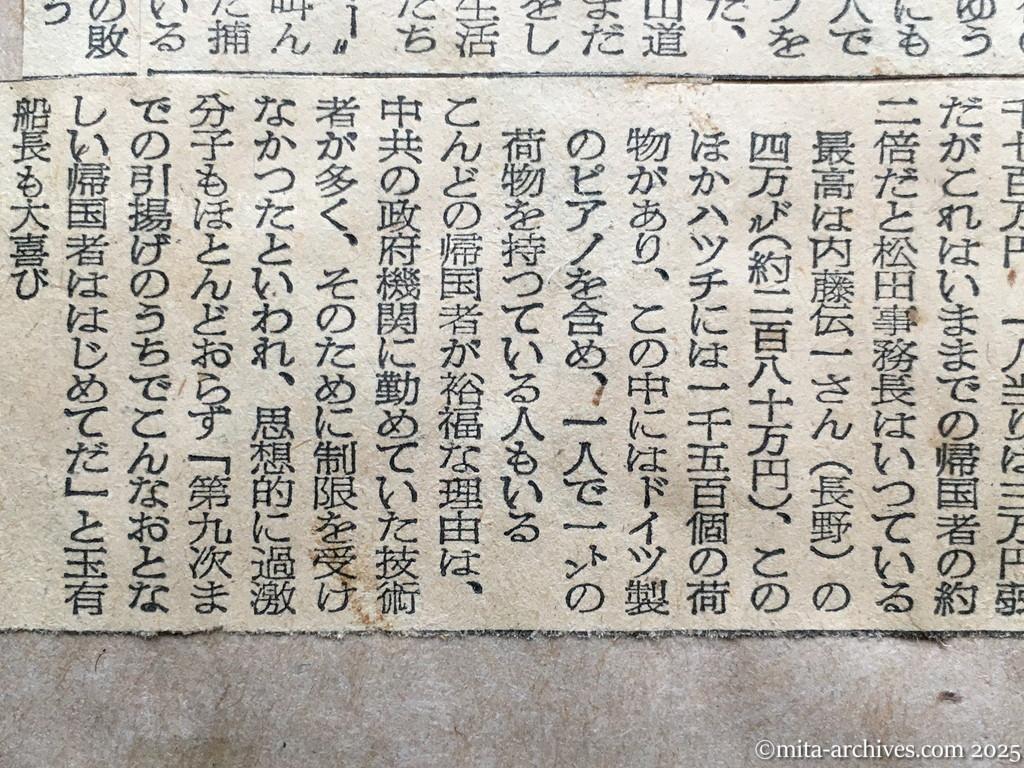 ゆう
にも
人で
フを
た、
山道
まだ
をし
生活
たち
ー〟
叫ん
た捕
いる
の敗
千七百万円、一人当りは三万円弱
だがこれはいままでの帰国者の約
二倍だと松田事務長はいつている
最高は内藤伝一さん（長野）の
四万㌦（約二百八十万円）、この
ほかハツチには一千五百個の荷
物があり、この中にはドイツ製
のピアノを含め、一人で一㌧の
荷物を持つている人もいる
こんどの帰国者が裕福な理由は、
中共の政府機関に勤めていた技術
者が多く、そのために制限を受け
なかつたといわれ、思想的に過激
分子もほとんどおらず「第九次ま
での引揚げのうちでこんなおとな
しい帰国者ははじめてだ」と玉有
船長も大喜び
©mita-archives.com 2025